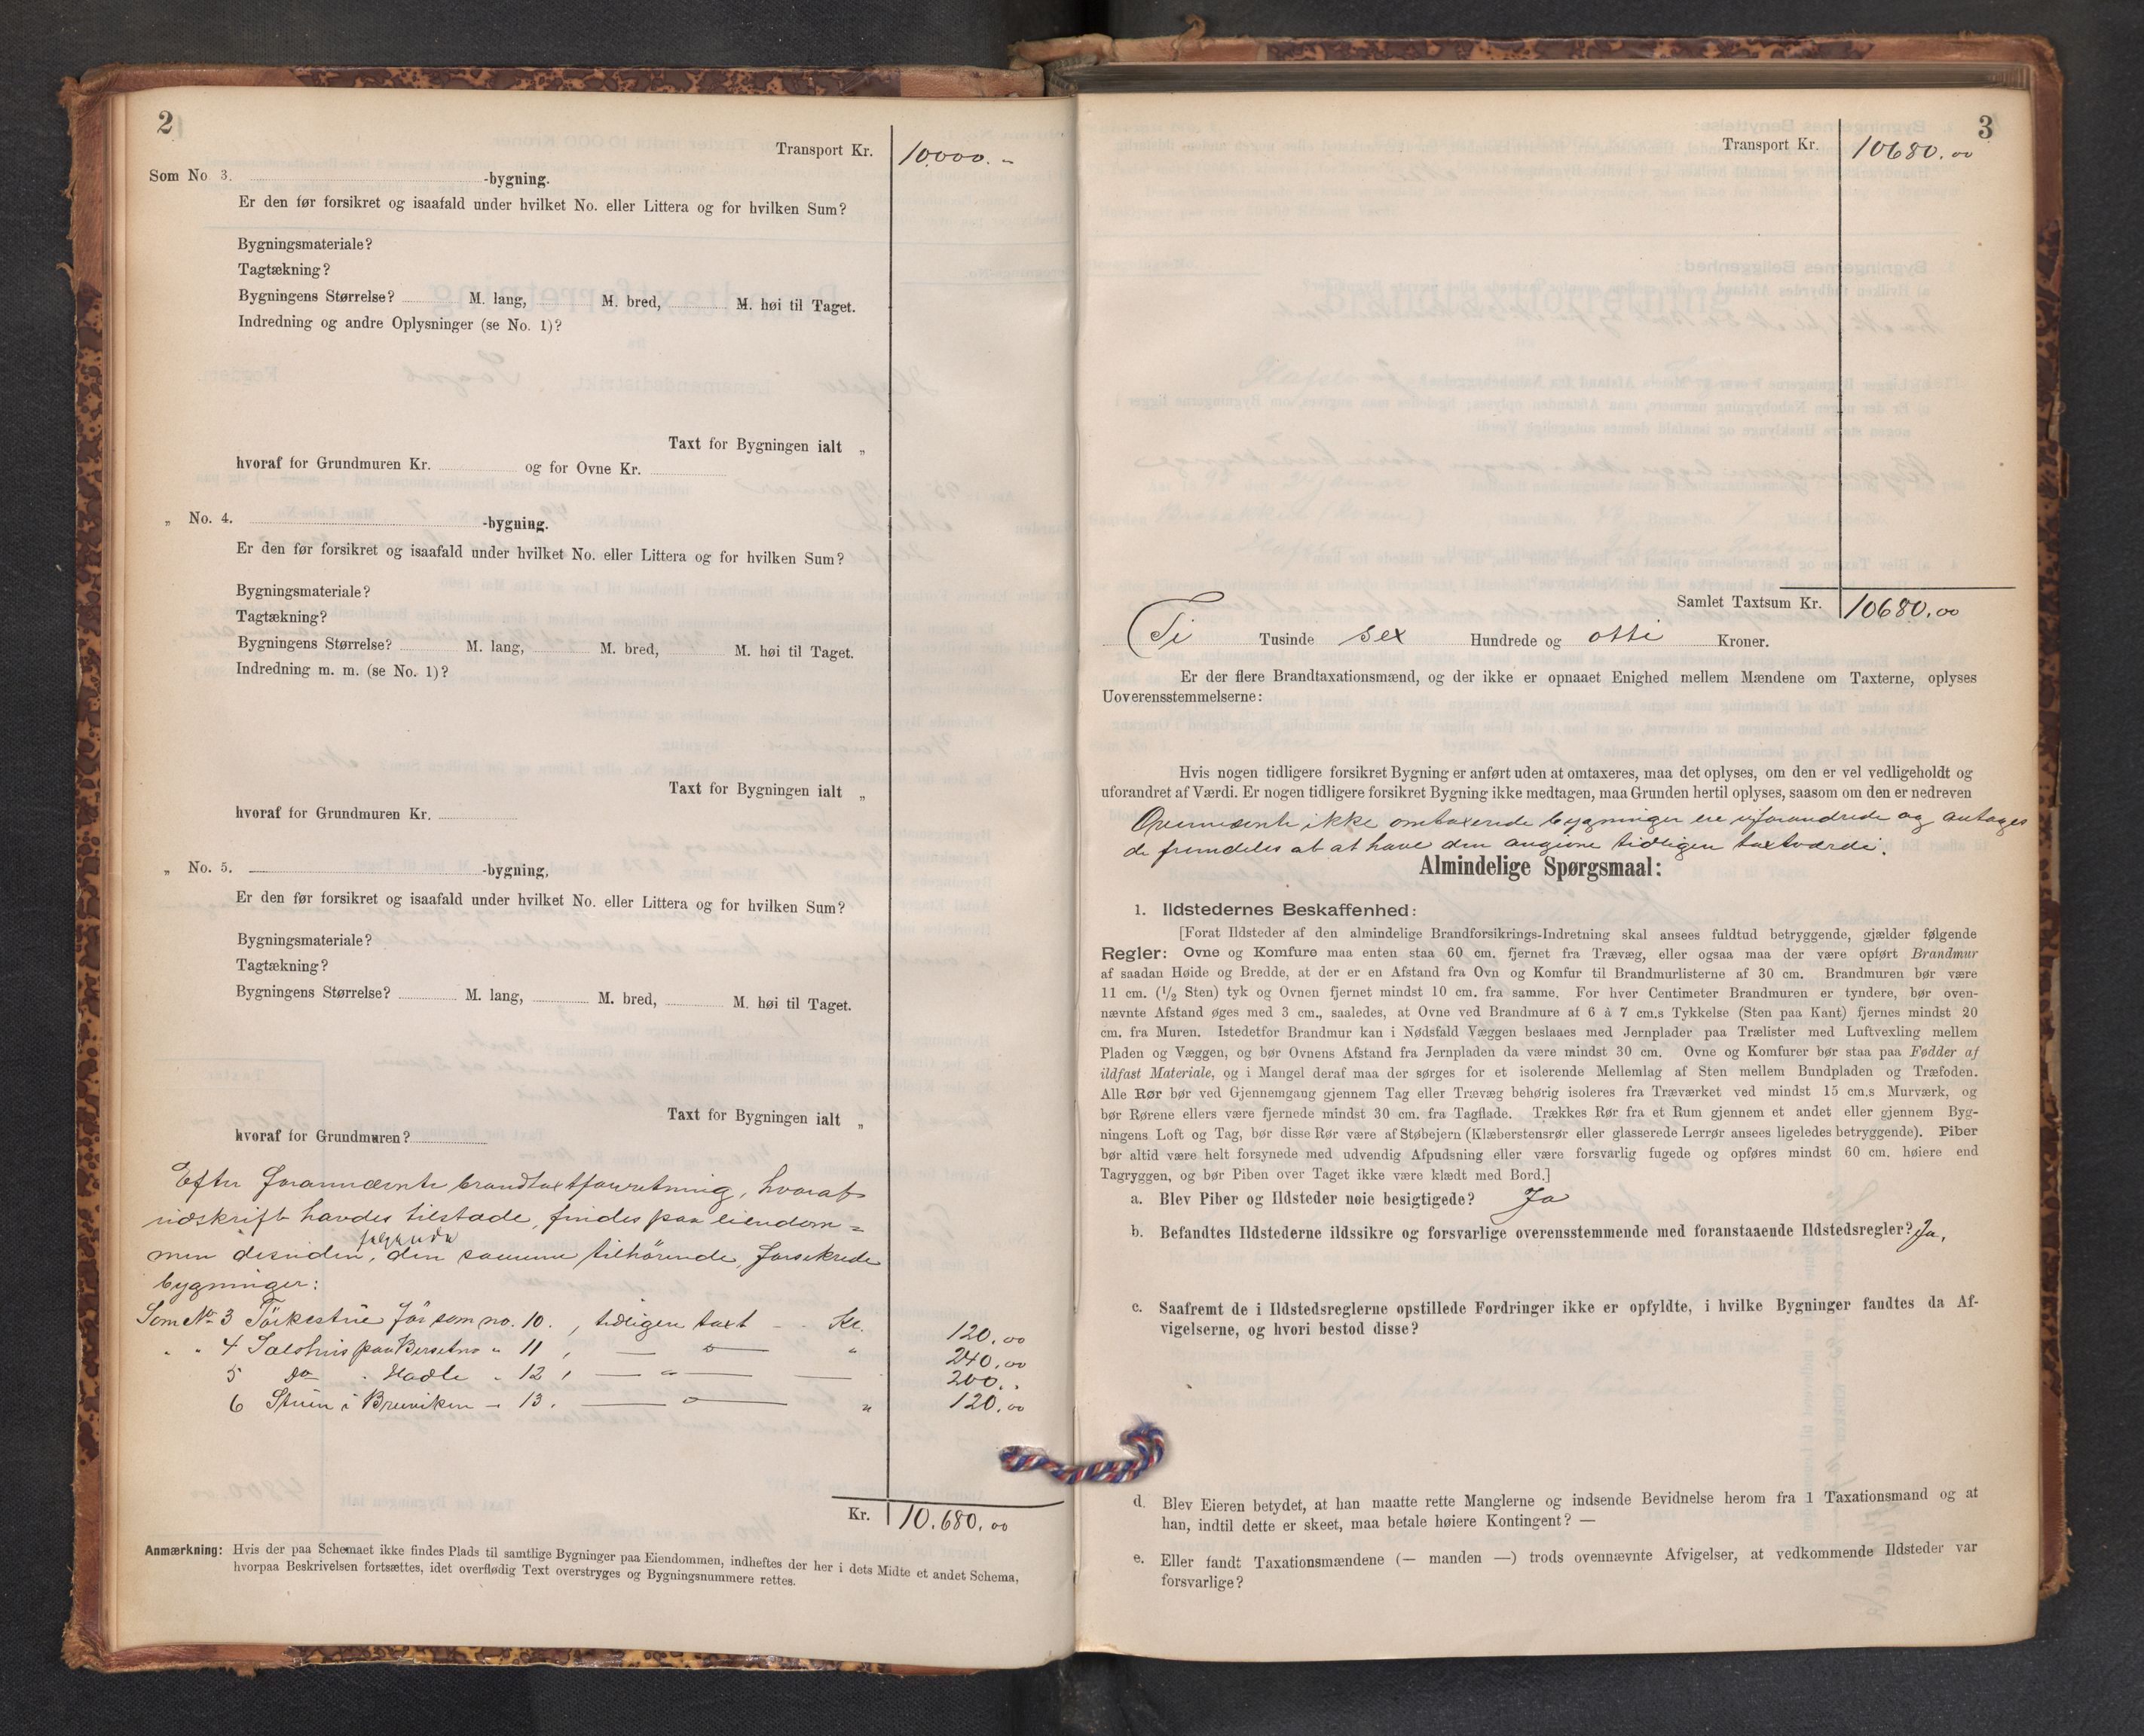 2
Transport Kr. 10.000.-
Som No 3. -bygning.
Er den før forsikret og isaafald under hvilket No. eller Littera og for hvilken Sum?
Bygningsmateriale?
Tagtækning?
Bygningens Størrelse? M. lang, M. bred, M. høi til Taget.
Indredning og andre Oplysninger (se No. 1)?
Taxt for Bygningen ialt „
hvoraf for Grundmuren Kr. og for Ovne Kr.
„ No. 4. -bygning.
Er den før forsikret og isaafald under hvilket No. eller Littera og for hvilken Sum?
Bygningsmateriale?
Tagtækning?
Bygningens Størrelse? M. lang, M. bred, M. høi til Taget.
Indredning m. m. (se No. 1)?
Taxt for Bygningen ialt „
hvoraf for Grundmuren Kr.
„ No. 5. -bygning,
Er den før forsikret og isaafald under hvilket No. eller Littera og for hvilken Sum?
Bygningsmateriale?
Tagtækning?
Bygningens Størrelse? M. lang, M. bred, M. høi til Taget.
Taxt for Bygningen ialt „
hvoraf for Grundmuren?
Efter forannævnte brandtaxtforretning, hvoraf
udskrift havdes tilstede, findes paa eiendom=
men desuden følgende, den samme tilhørende, forsikrede
bygninger:
Som No 3 Törkestue för som no. 10., tidligere taxt - Kr. 120.00
" " 4 paa " 11, — do — " 240.00
5 do " 12, — " — 200. "
6 i - 13. — " — " 120.00
Kr. 10.680.00
Anmærkning: Hvis der paa Schemaet ikke findes Plads til samtlige Bygninger paa Eiendommen, indheftes der her i dets Midte et andet Schema,
hvorpaa Beskrivelsen fortsættes, idet overflødig Text overstryges og Bygningsnummere rettes.
3
Transport Kr. 10680.00
Samlet Taxtsum Kr. 10680.00
Ti Tusinde sex Hundrede og otti Kroner.
Er der flere Brandtaxationsmænd, og der ikke er opnaaet Enighed mellem Mændene om Taxterne, oplyses
Uoverensstemmelserne:
Hvis nogen tidligere forsikret Bygning er anført uden at omtaxeres, maa det oplyses, om den er vel vedligeholdt og
uforandret af Værdi. Er nogen tidligere forsikret Bygning ikke medtagen, maa Grunden hertil oplyses, saasom om den er nedreven
Ovennævnte ikke omtaxerede bygninger ere uforandrede og antages
de fremdeles at have den angivne tidligere taxtværdi.
Almindelige Spørgsmaal:
1. Ildstedernes Beskaffenhed:
[Forat Ildsteder af den almindelige Brandforsikrings-Indretning skal ansees fuldtud betryggende, gjælder følgende
Regler: Ovne og Komfure maa enten staa 60 cm. fjernet fra Trævæg, eller ogsaa maa der være opført Brandmur
af saadan Høide og Bredde, at der er en Afstand fra Ovn og Komfur til Brandmurlisterne af 30 cm. Brandmuren bør være
11 cm. (1/2 Sten) tyk og Ovnen fjernet mindst 10 cm. fra samme. For hver Centimeter Brandmuren er tyndere, bør oven-
nævnte Afstand øges med 3 cm., saaledes, at Ovne ved Brandmure af 6 à 7 cm.s Tykkelse (Sten paa Kant) fjernes mindst 20
cm. fra Muren. Istedetfor Brandmur kan i Nødsfald Væggen beslaaes med Jernplader paa Trælister med Luftvexling mellem
Pladen og Væggen, og bør Ovnens Afstand fra Jernpladen da være mindst 30 cm. Ovne og Komfurer bør staa paa Fødder af
ildfast Materiale, og i Mangel deraf maa der sørges for et isolerende Mellemlag af Sten mellem Bundpladen og Træfoden.
Alle Rør bør ved Gjennemgang gjennem Tag eller Trævæg behørig isoleres fra Træværket ved mindst 15 cm.s Murværk, og
bør Rørene ellers være fjernede mindst 30 cm. fra Tagflade. Trækkes Rør fra et Rum gjennem et andet eller gjennem Byg-
ningens Loft og Tag, bør disse Rør være af Støbejern (Klæberstensrør eller glasserede Lerrør ansees ligeledes betryggende). Piber
bør altid være helt forsynede med udvendig Afpudsning eller være forsvarlig fugede og opføres mindst 60 cm. høiere end
Tagryggen, og bør Piben over Taget ikke være klædt med Bord.]
a. Blev Piber og Ildsteder nøie besigtigede? Ja
b. Befandtes Ildstederne ildssikre og forsvarlige overensstemmende med foranstaaende Ildstedsregler? Ja.
c. Saafremt de i Ildstedsreglerne opstillede Fordringer ikke er opfyldte, i hvilke Bygninger fandtes da Af-
vigelserne, og hvori bestod disse?
d. Blev Eieren betydet, at han maatte rette Manglerne og indsende Bevidnelse herom fra 1 Taxationsmand og at
han, indtil dette er skeet, maa betale høiere Kontingent? —
e. Eller fandt Taxationsmændene (— manden —) trods ovennævnte Afvigelser, at vedkommende Ildsteder var
forsvarlige?